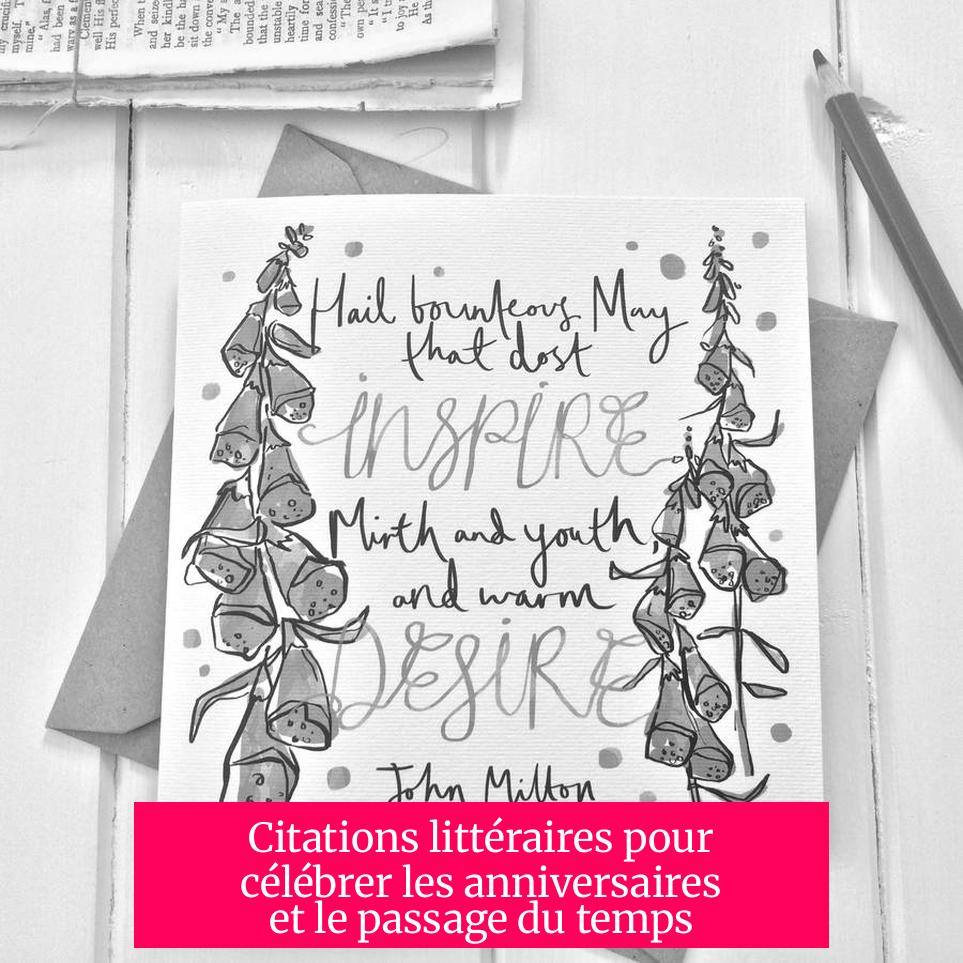 Hail bounteous May
that dost
INSPIRE
Mirth and youth,
and warm
DESIRE
John Milton
Citations littéraires pour
célébrer les anniversaires
et le passage du temps